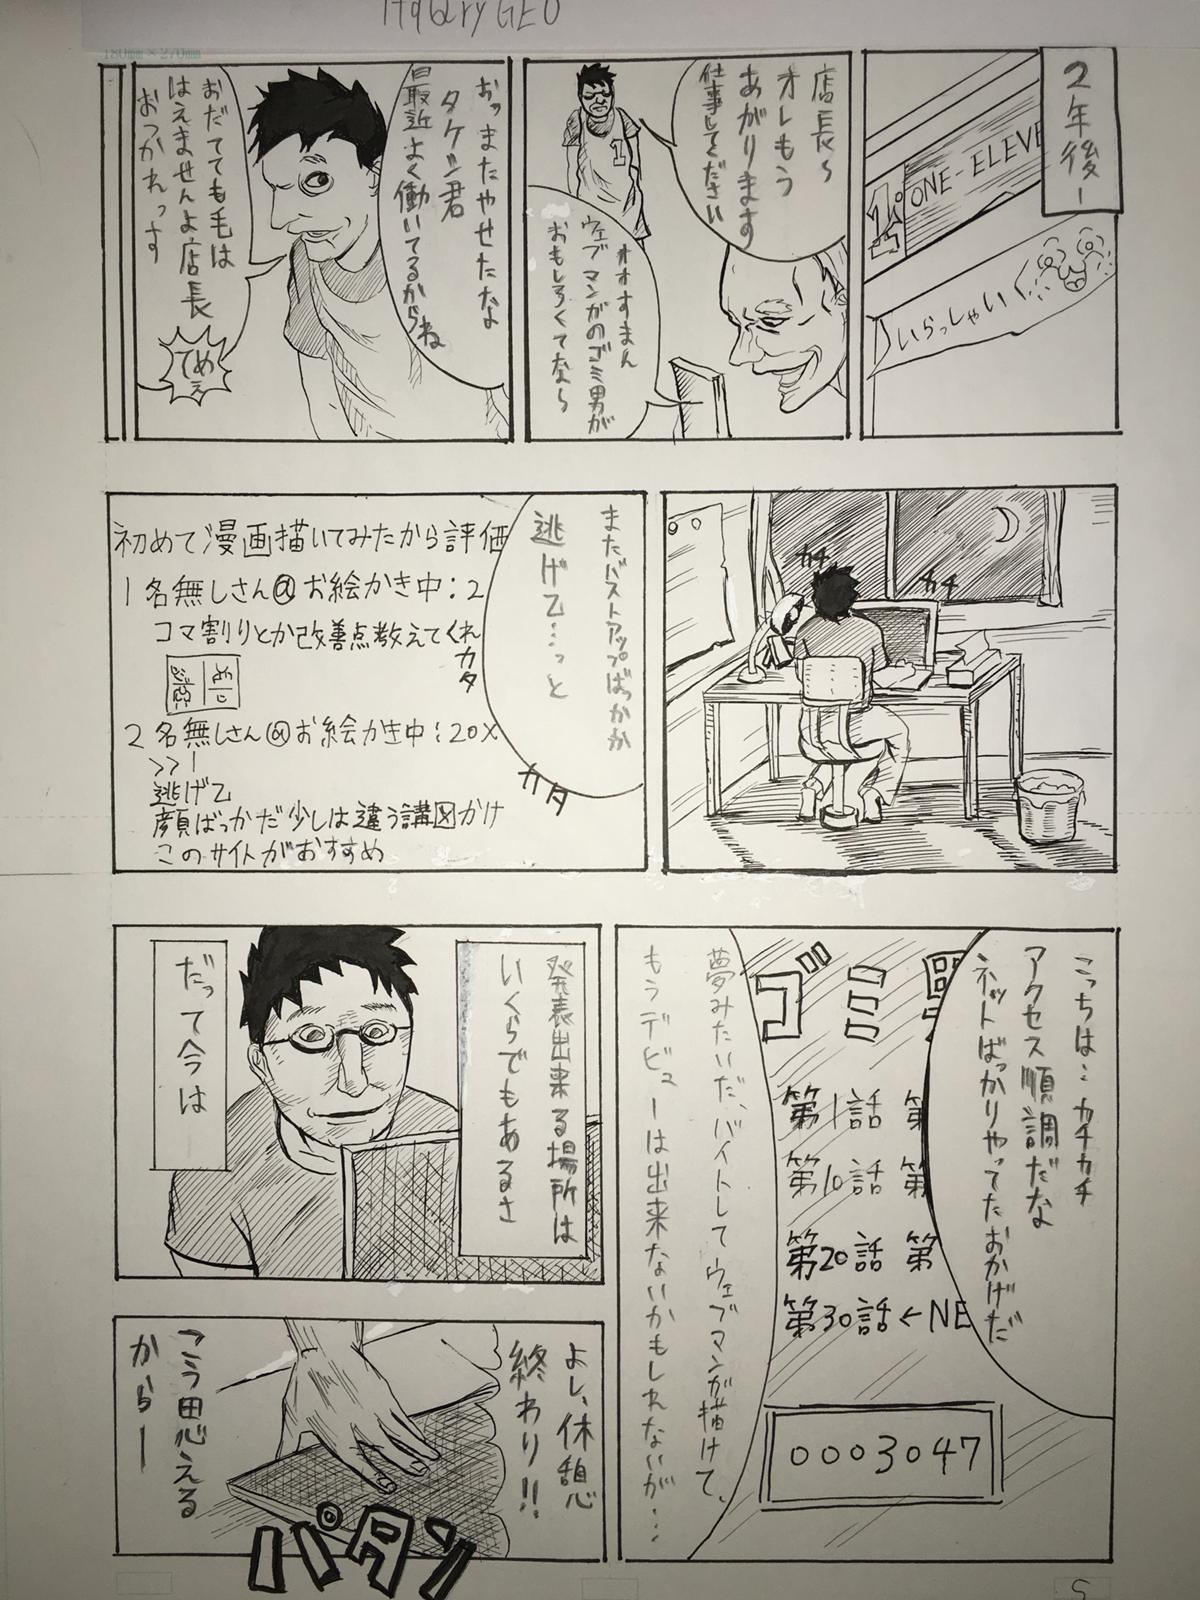 180mm×270mm
2年後ー
ONE-ELEVE
1号
いらっしゃいく
店長〜
オレもう
あがります
仕事してください
1
オオすまん
ウェブマンガのゴミ男が
おもしろくてなら
おっまたやせたな
タケシ君
最近よく働いてるからね
おだてても毛は
はえませんよ店長
おつかれっす
てめぇ
カチ
カチ
またバストアップばっかか
逃げ乙…っと
カタ
初めて漫画描いてみたから評価
1 名無しさん@お絵かき中:2
コマ割りとか改善点教えてくれ
カタ
2 名無しさん@お絵かき中:20X
>>1
逃げ乙
顔ばっかだ少しは違う講図かけ
このサイトがおすすめ
こっちは…カチカチ
アクセス順調だな
ネットばっかりやってたおかげだ
ゴミ
第1話 第
第10話 第
第20話 第
第30話←NE
0003047
夢みたいだ、バイトしてウェブマンガ描けて、
もうデビューは出来ないかもしれないが…
発表出来る場所は
いくらでもあるさ
だって今は
よし、休憩
終わり!!
こう思える
からー
パタン
5